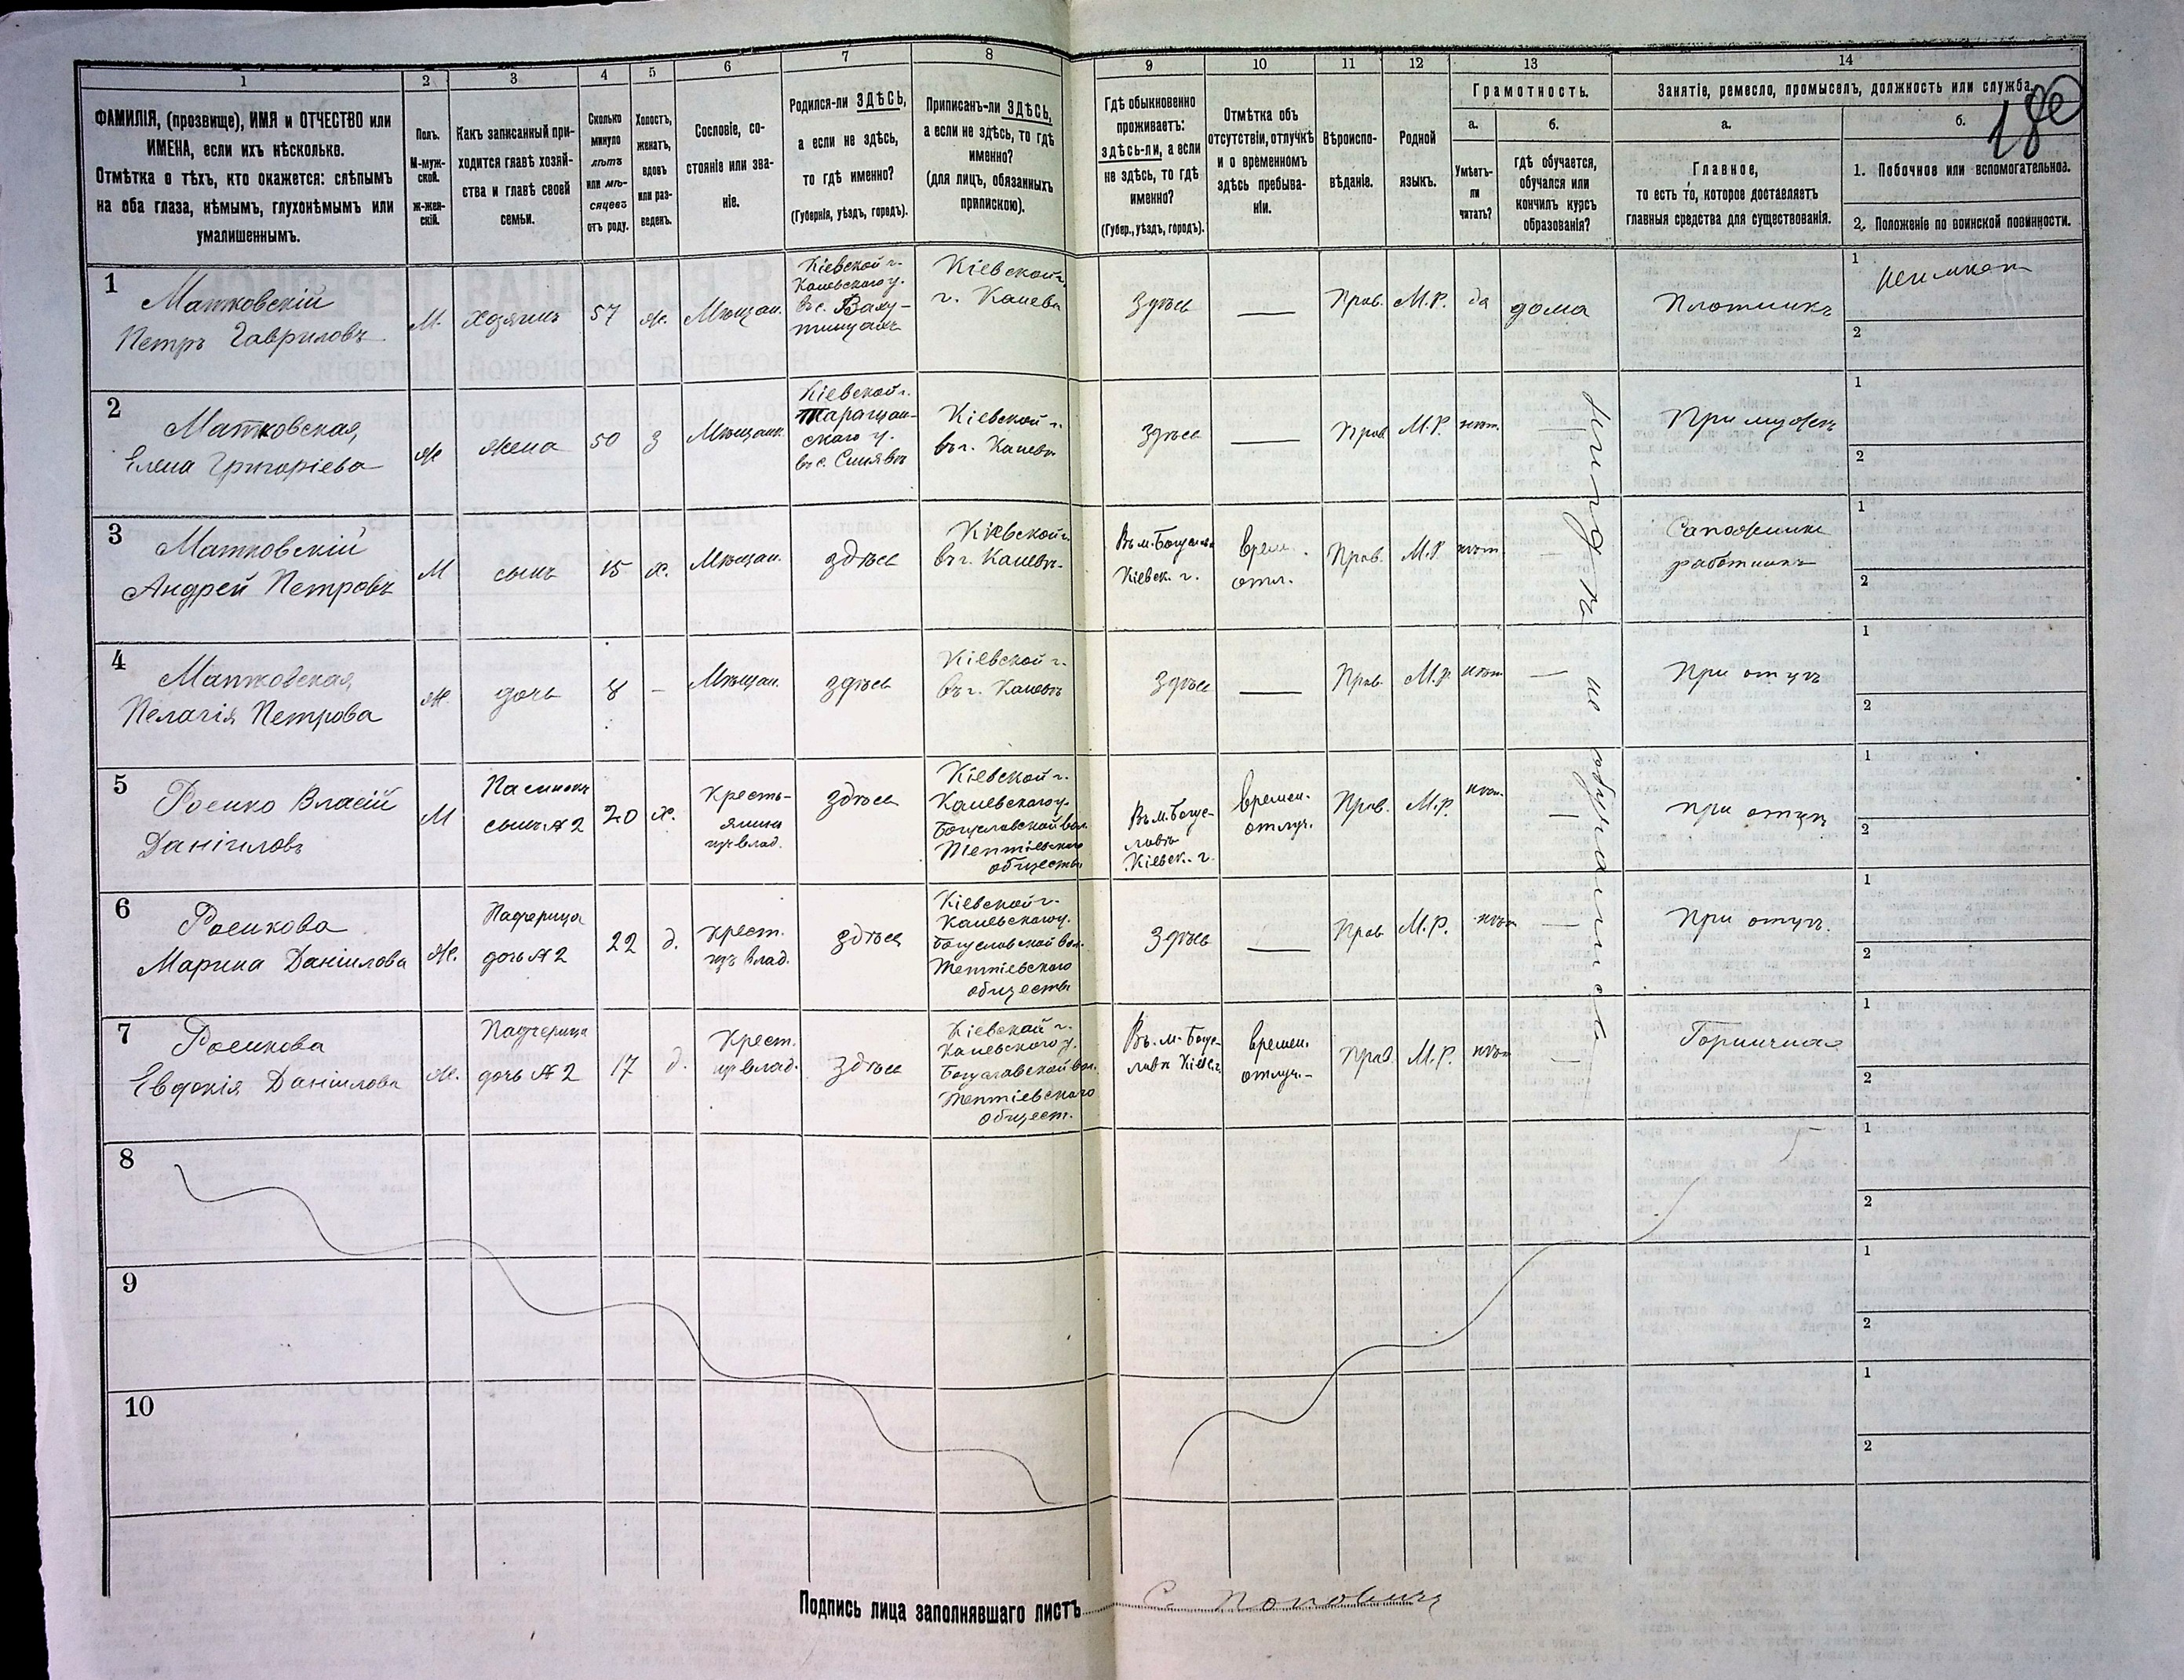 1 2 3 4 5 6 7 8 9 10 11 12 13 14
ФАМИЛІЯ, (прозвище), ИМЯ и ОТЧЕСТВО или ИМЕНА, если ихъ нѣсколько.
Отмѣтка о тѣхъ, кто окажется: слѣпымъ на оба глаза, нѣмымъ, глухонѣмымъ или умалишеннымъ.
Полъ.
М-муж-
ской.
Ж-жен-
скій.
Какъ записанный при-
ходится главѣ хозяй-
ства и главѣ своей
семьи.
Сколько
минуло
лѣтъ
или мѣ-
сяцевъ
отъ роду.
Холостъ,
женатъ,
вдовъ
или раз-
веденъ.
Сословіе, со-
стояніе или зва-
ніе.
Родился-ли ЗДѢСЬ,
а если не здѣсь,
то гдѣ именно?
(Губернія, уѣздъ, городъ).
Приписанъ-ли ЗДѢСЬ,
а если не здѣсь, то гдѣ
именно?
(для лицъ, обязанныхъ
припискою).
Гдѣ обыкновенно
проживаетъ:
здѣсь-ли, а если
не здѣсь, то гдѣ
именно?
(Губер., уѣздъ, городъ).
Отмѣтка объ
отсутствіи, отлучкѣ
и о временномъ
здѣсь пребыва-
ніи.
Вѣроиспо-
вѣданіе.
Родной
языкъ.
Грамотность.
а.
Умѣетъ-
ли
читать?
б.
гдѣ обучается,
обучался или
кончилъ курсъ
образованія?
Занятіе, ремесло, промыселъ, должность или служба.
а.
Главное,
то есть то, которое доставляетъ
главныя средства для существованія.
б.
1. Побочное или вспомогательное.
2. Положеніе по воинской повинности.
1
Матковскій
Петръ Гавриловъ
М.
хозяинъ
57
ж.
Мѣщан.
Кіевской г.
Каневского у.
въ с.
Кіевской г.
г. Канева
Здѣсь
—
Прав.
М.Р.
да
дома
Плотникъ
1
2
2
Матковская,
Елена Григоріева
ж
жена
50
З
Мѣщанк.
Кіевской г.
Таращан-
скаго у.
въ с. Синявѣ
Кіевской г.
въ г. Каневѣ
Здѣсь
—
Прав
М.Р.
нѣт.
—
При мужѣ
1
2
3
Матковскій
Андрей Петровъ
М
сынъ
15
х.
Мѣщан.
здѣсь
Кіевской г.
въ г. Каневѣ
Въ м. Богуславѣ
Кіевск. г.
врем.
отл.
Прав.
М.Р.
нѣт.
—
Сапожника
работникъ
1
2
4
Матковская,
Пелагія Петрова
ж.
дочь
8
–
Мѣщан.
здѣсь
Кіевской г.
въ г. Каневѣ
Здѣсь
—
Прав.
М.Р.
нѣт
—
При отцѣ
1
2
5
Росико Власій
Даніиловъ
М
Пасынокъ
сынъ №2
20
х.
Кресть-
янинъ
изъ влад.
здѣсь
Кіевской г.
Каневскаго у.
Богуславской вол.
Тептіевскаго
общества
Въ м. Богус-
лавѣ
Кіевск. г.
времен.
отлуч.
Прав.
М.Р.
нѣт.
—
при отцѣ
1
2
6
Росикова
Марина Даніилова
ж.
Падчерица
дочь №2
22
д.
крест.
изъ влад.
здѣсь
Кіевской г.
Каневскаго у.
Богуславской вол.
Тептіевскаго
общества
Здѣсь
—
Прав
М.Р.
нѣт
—
При отцѣ.
1
2
7
Росикова
Евдокія Даніилова
ж.
Падчерица
дочь №2
17
д.
Крест.
изъ влад.
здѣсь
Кіевской г.
Каневскаго у.
Богуславской вол.
Тептіевскаго
общест.
Въ м. Богус-
лавѣ Кіев. г.
времен.
отлуч.
Прав
М.Р.
нѣт
—
Горничная
1
2
нигдѣ не обучались
8
1
2
9
1
2
10
1
2
Подпись лица заполнявшаго листъ С. Поповичъ